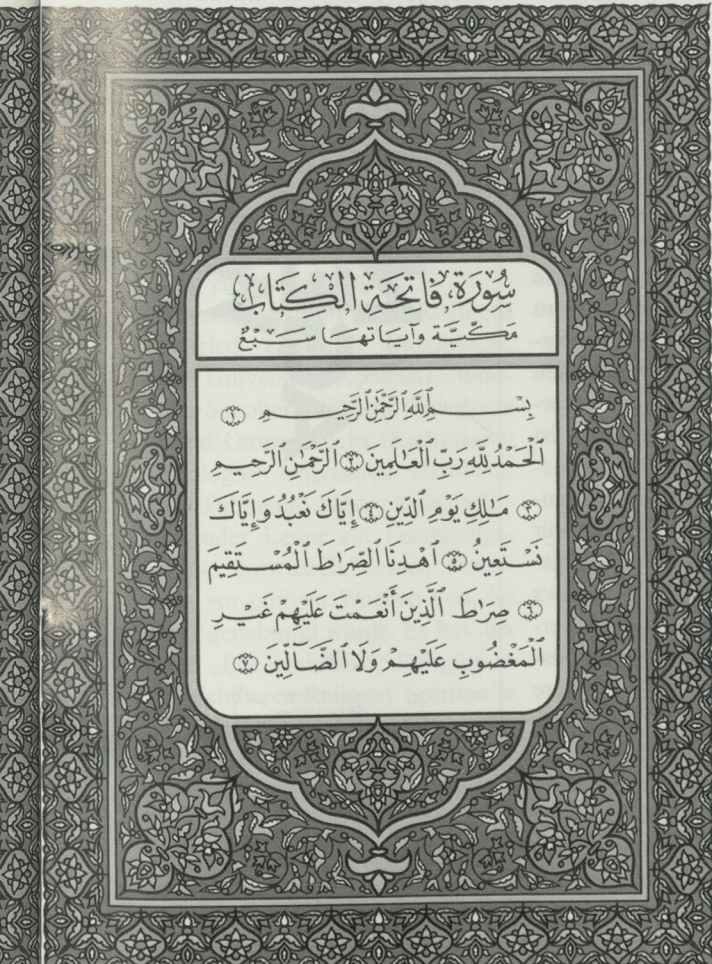 سُورَةُ فَاتِحَةِ الْكِتَابِ
مَكِّيَّة وَآيَاتهَا سَبْعٌ
بِسْمِ ٱللَّهِ ٱلرَّحْمَٰنِ ٱلرَّحِيمِ ١
ٱلْحَمْدُ لِلَّهِ رَبِّ ٱلْعَٰلَمِينَ ٢ ٱلرَّحْمَٰنِ ٱلرَّحِيمِ
٣ مَٰلِكِ يَوْمِ ٱلدِّينِ ٤ إِيَّاكَ نَعْبُدُ وَإِيَّاكَ
نَسْتَعِينُ ٥ ٱهْدِنَا ٱلصِّرَٰطَ ٱلْمُسْتَقِيمَ
٦ صِرَٰطَ ٱلَّذِينَ أَنْعَمْتَ عَلَيْهِمْ غَيْرِ
ٱلْمَغْضُوبِ عَلَيْهِمْ وَلَا ٱلضَّآلِّينَ ٧